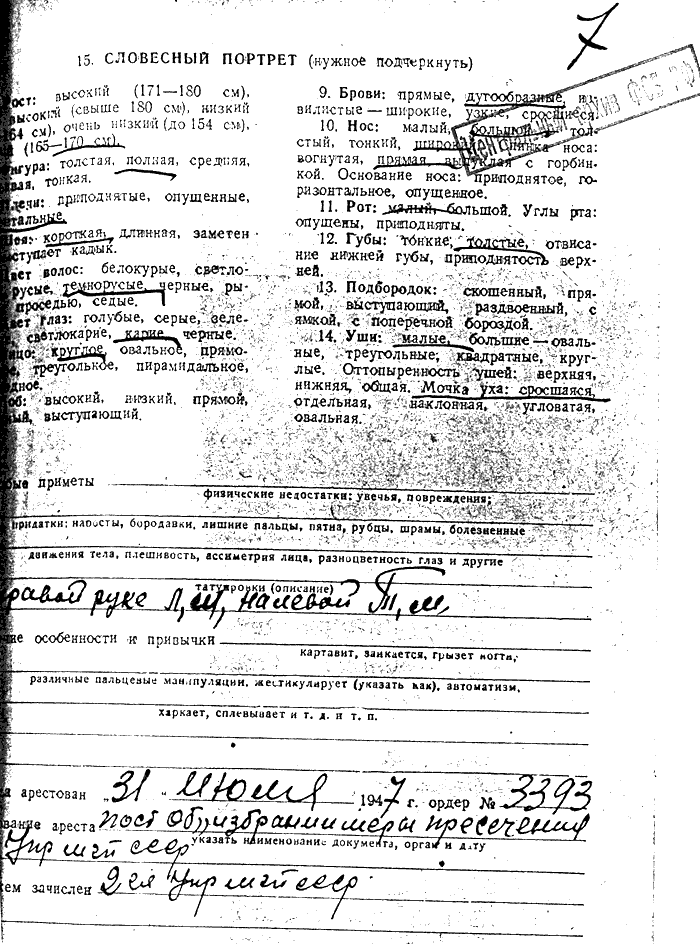 7
15. СЛОВЕСНЫЙ ПОРТРЕТ (нужное подчеркнуть)
рост: высокий (171—180 см),
высокий (свыше 180 см), низкий
64 см), очень низкий (до 154 см),
й (165—170 см).
игура: толстая, полная, средняя,
вая, тонкая.
лечи: приподнятые, опущенные,
тальные.
Шея: короткая, длинная, заметен
ступает кадык.
вет волос: белокурые, светло-
русые, темнорусые, черные, ры-
проседью, седые.
вет глаз: голубые, серые, зеле-
светлокарие, карие, черные.
ицо: круглое, овальное, прямо-
е, треуголькое, пирамидальное,
дное.
об: высокий, низкий, прямой,
ный, выступающий.
9. Брови: прямые, дугообразные, из-
вилистые — широкие, узкие, сросшиеся.
10. Нос: малый, большой — тол-
стый, тонкий, широкий. Спинка носа:
вогнутая, прямая, выпуклая с горбин-
кой. Основание носа: приподнятое, го-
ризонтальное, опущенное.
11. Рот: малый, большой. Углы рта:
опущены, приподняты.
12. Губы: тонкие, толстые, отвиса-
ние нижней губы, приподнятость верх-
ней.
13. Подбородок: скошенный, пря-
мой, выступающий, раздвоенный, с
ямкой, с поперечной бороздой.
14. Уши: малые, большие — оваль-
ные, треугольные, квадратные, круг-
лые. Оттопыренность ушей: верхняя,
нижняя, общая. Мочка уха: сросшаяся,
отдельная, наклонная, угловатая,
овальная.
Центральный архив ФСБ РФ
бые приметы
физические недостатки: увечья, повреждения;
придатки: наросты, бородавки, лишние пальцы, пятна, рубцы, шрамы, болезненные
движения тела, плешивость, ассиметрия лица, разноцветность глаз и другие
татуировки (описание)
равой руке Л, Ш, на левой Т, М
чие особенности и привычки
картавит, заикается, грызет ногти,
различные пальцевые манипуляции, жестикулирует (указать как), автоматизм,
харкает, сплевывает и т. д. и т. п.
а арестован „31" июля 1947 г. ордер № 3393
вание ареста пост об избрании меры пресечения
указать наименование документа, орган и дату
Упр мгб ссср
ем зачислен 2 гл Упр мгб ссср